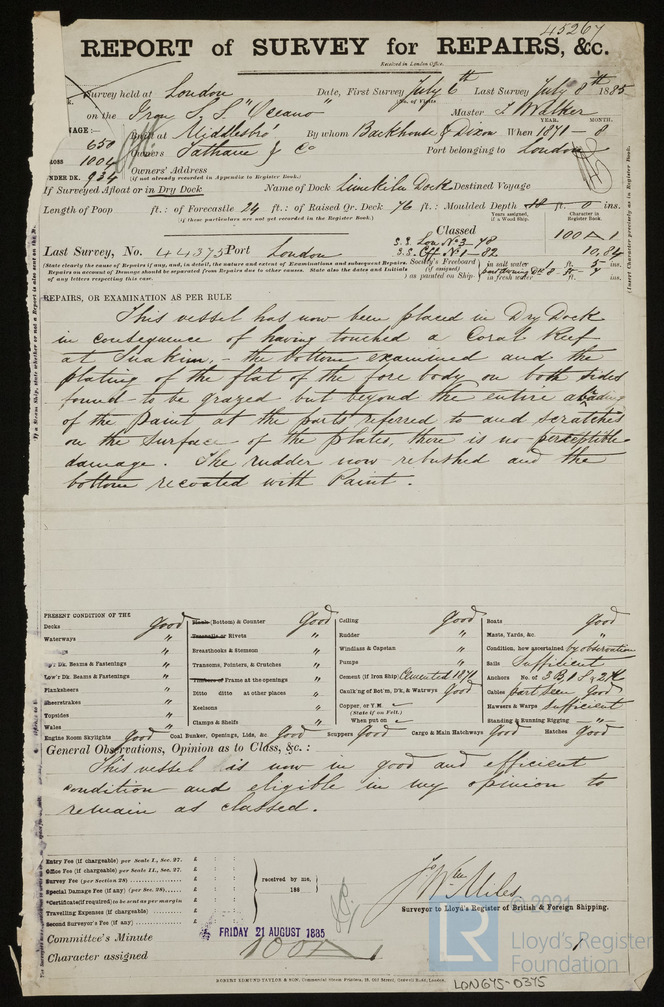 45267
REPORT of SURVEY for REPAIRS, &c.
Received in London Office.
Survey held at London Date, First Survey July 6th Last Survey July 8th 1885
No. of Visits
on the Iron S.S. "Oceano" Master J. Walker
YEAR. MONTH.
NAGE:—
650
Built at Middlesbro' By whom Backhouse & Dixon When 1871 — 8
1004
Owners Tatham & Co Port belonging to London
UNDER DK. 934
Owners' Address
(if not already recorded in Appendix to Register Book.)
If Surveyed Afloat or in Dry Dock Name of Dock Limekiln Dock Destined Voyage
Length of Poop ft.: of Forecastle 24 ft.: of Raised Qr. Deck 76 ft.: Moulded Depth 18 ft. 0 ins.
(if these particulars are not yet recorded in the Register Book.)
Years assigned, if a Wood Ship.
Character in Register Book.
Classed 100A1
S.S. Lon. No 3-78 10,84
Last Survey, No. 44375 Port London
Society's Freeboard (if assigned) as painted on Ship
in salt water
in fresh water
(State clearly the cause of Repairs if any, and, in detail, the nature and extent of Examinations and subsequent Repairs.
Repairs on account of Damage should be separated from Repairs due to other causes. State also the dates and Initials
of any letters respecting this case.
(Insert Character precisely as in Register Book.
REPAIRS, OR EXAMINATION AS PER RULE
This vessel has now been placed in Dry Dock
in consequence of having touched a Coral Reef
at Suakim,- the bottom examined and the
plating of the flat of the fore body on both sides
found to be grazed but beyond the entire abrading
of the paint at the parts referred to and scratches
on the surface of the plates, there is no perceptible
damage. The rudder now rebushed and the
bottom recoated with Paint.
PRESENT CONDITION OF THE
Decks Good
Waterways "
Up'r Dk. Beams & Fastenings "
Low'r Dk. Beams & Fastenings "
Planksheers "
Sheerstrakes "
Topsides "
Wales "
Plank (Bottom) & Counter Good
Treenails or Rivets "
Breasthooks & Stemson "
Transoms, Pointers, & Crutches "
Timbers of Frame at the openings "
Ditto ditto at other places "
Keelsons "
Clamps & Shelfs "
Ceiling Good
Rudder "
Windlass & Capstan "
Pumps "
Cement (if Iron Ship) Cemented 1876
Caulk'ng of Bot'm, D'k, & Watrwys Good
Copper, or Y.M.
(State if on Felt.)
When put on
Boats Good
Masts, Yards, &c. "
Condition, how ascertained by observation
Sails Sufficient
Anchors No. of 3 B, 1 S, 2 K
Cables part seen Good
Hawsers & Warps Sufficient
Standing & Running Rigging —"—
Engine Room Skylights Good Coal Bunker, Openings, Lids, &c. Good Scuppers Good Cargo & Main Hatchways Good Hatches Good
General Observations, Opinion as to Class, &c.:
This vessel is now in good and efficient
condition and eligible in my opinion to
remain as classed.
Entry Fee (if chargeable) per Scale I., Sec. 27. £ : :
Office Fee (if chargeable) per Scale II., Sec. 27. £ : :
Survey Fee (per Section 28) £ : :
Special Damage Fee (if any) (per Sec. 28) £ : :
*Certificate (if required) to be sent as per margin £ : :
Travelling Expenses (if chargeable) £ : :
Second Surveyor's Fee (if any) £ : :
received by me,
188
Wm Miles
Surveyor to Lloyd's Register of British & Foreign Shipping.
Committee's Minute FRIDAY 21 AUGUST 1885
Character assigned 100A1
ROBERT EDMUND TAYLOR & SON, Commercial Steam Printers, 19, Old Street, Goswell Road, London.
© 2021
LR
Lloyd's Register
Foundation
LON675-0375